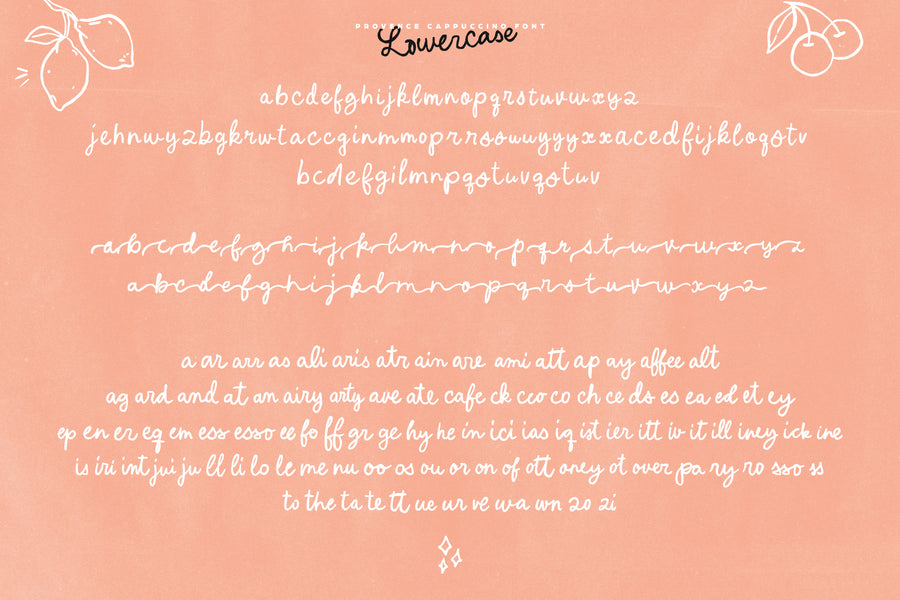 PROVENCE CAPPUCCINO FONT
Lowercase
abcdefghijklmnopqrstuvwxyz
jehnwyzbgkrwtaccginmmoprrsouuyyyxxacedfijkloqstv
bcdefgilmnpqstuvqstuv
abcdefghijklmnopqrstuvwxyz
abcdefghijklmnopqrstuvwxyz
a ar arr as ali aris atr ain are ami att ap ay affee alt
ag ard and at an airy arty ave ate cafe ck cco co ch ce ds es ea ed et ey
ep en er eq em ess esso ee fo ff gr ge hy he in ici ias iq ist ier itt iv it ill iney ick ine
is iri int jui ju ll li lo le me nu oo os ou or on of ott oney ot over pa ry ro sso ss
to the ta te tt ue ur ve wa wn zo zi